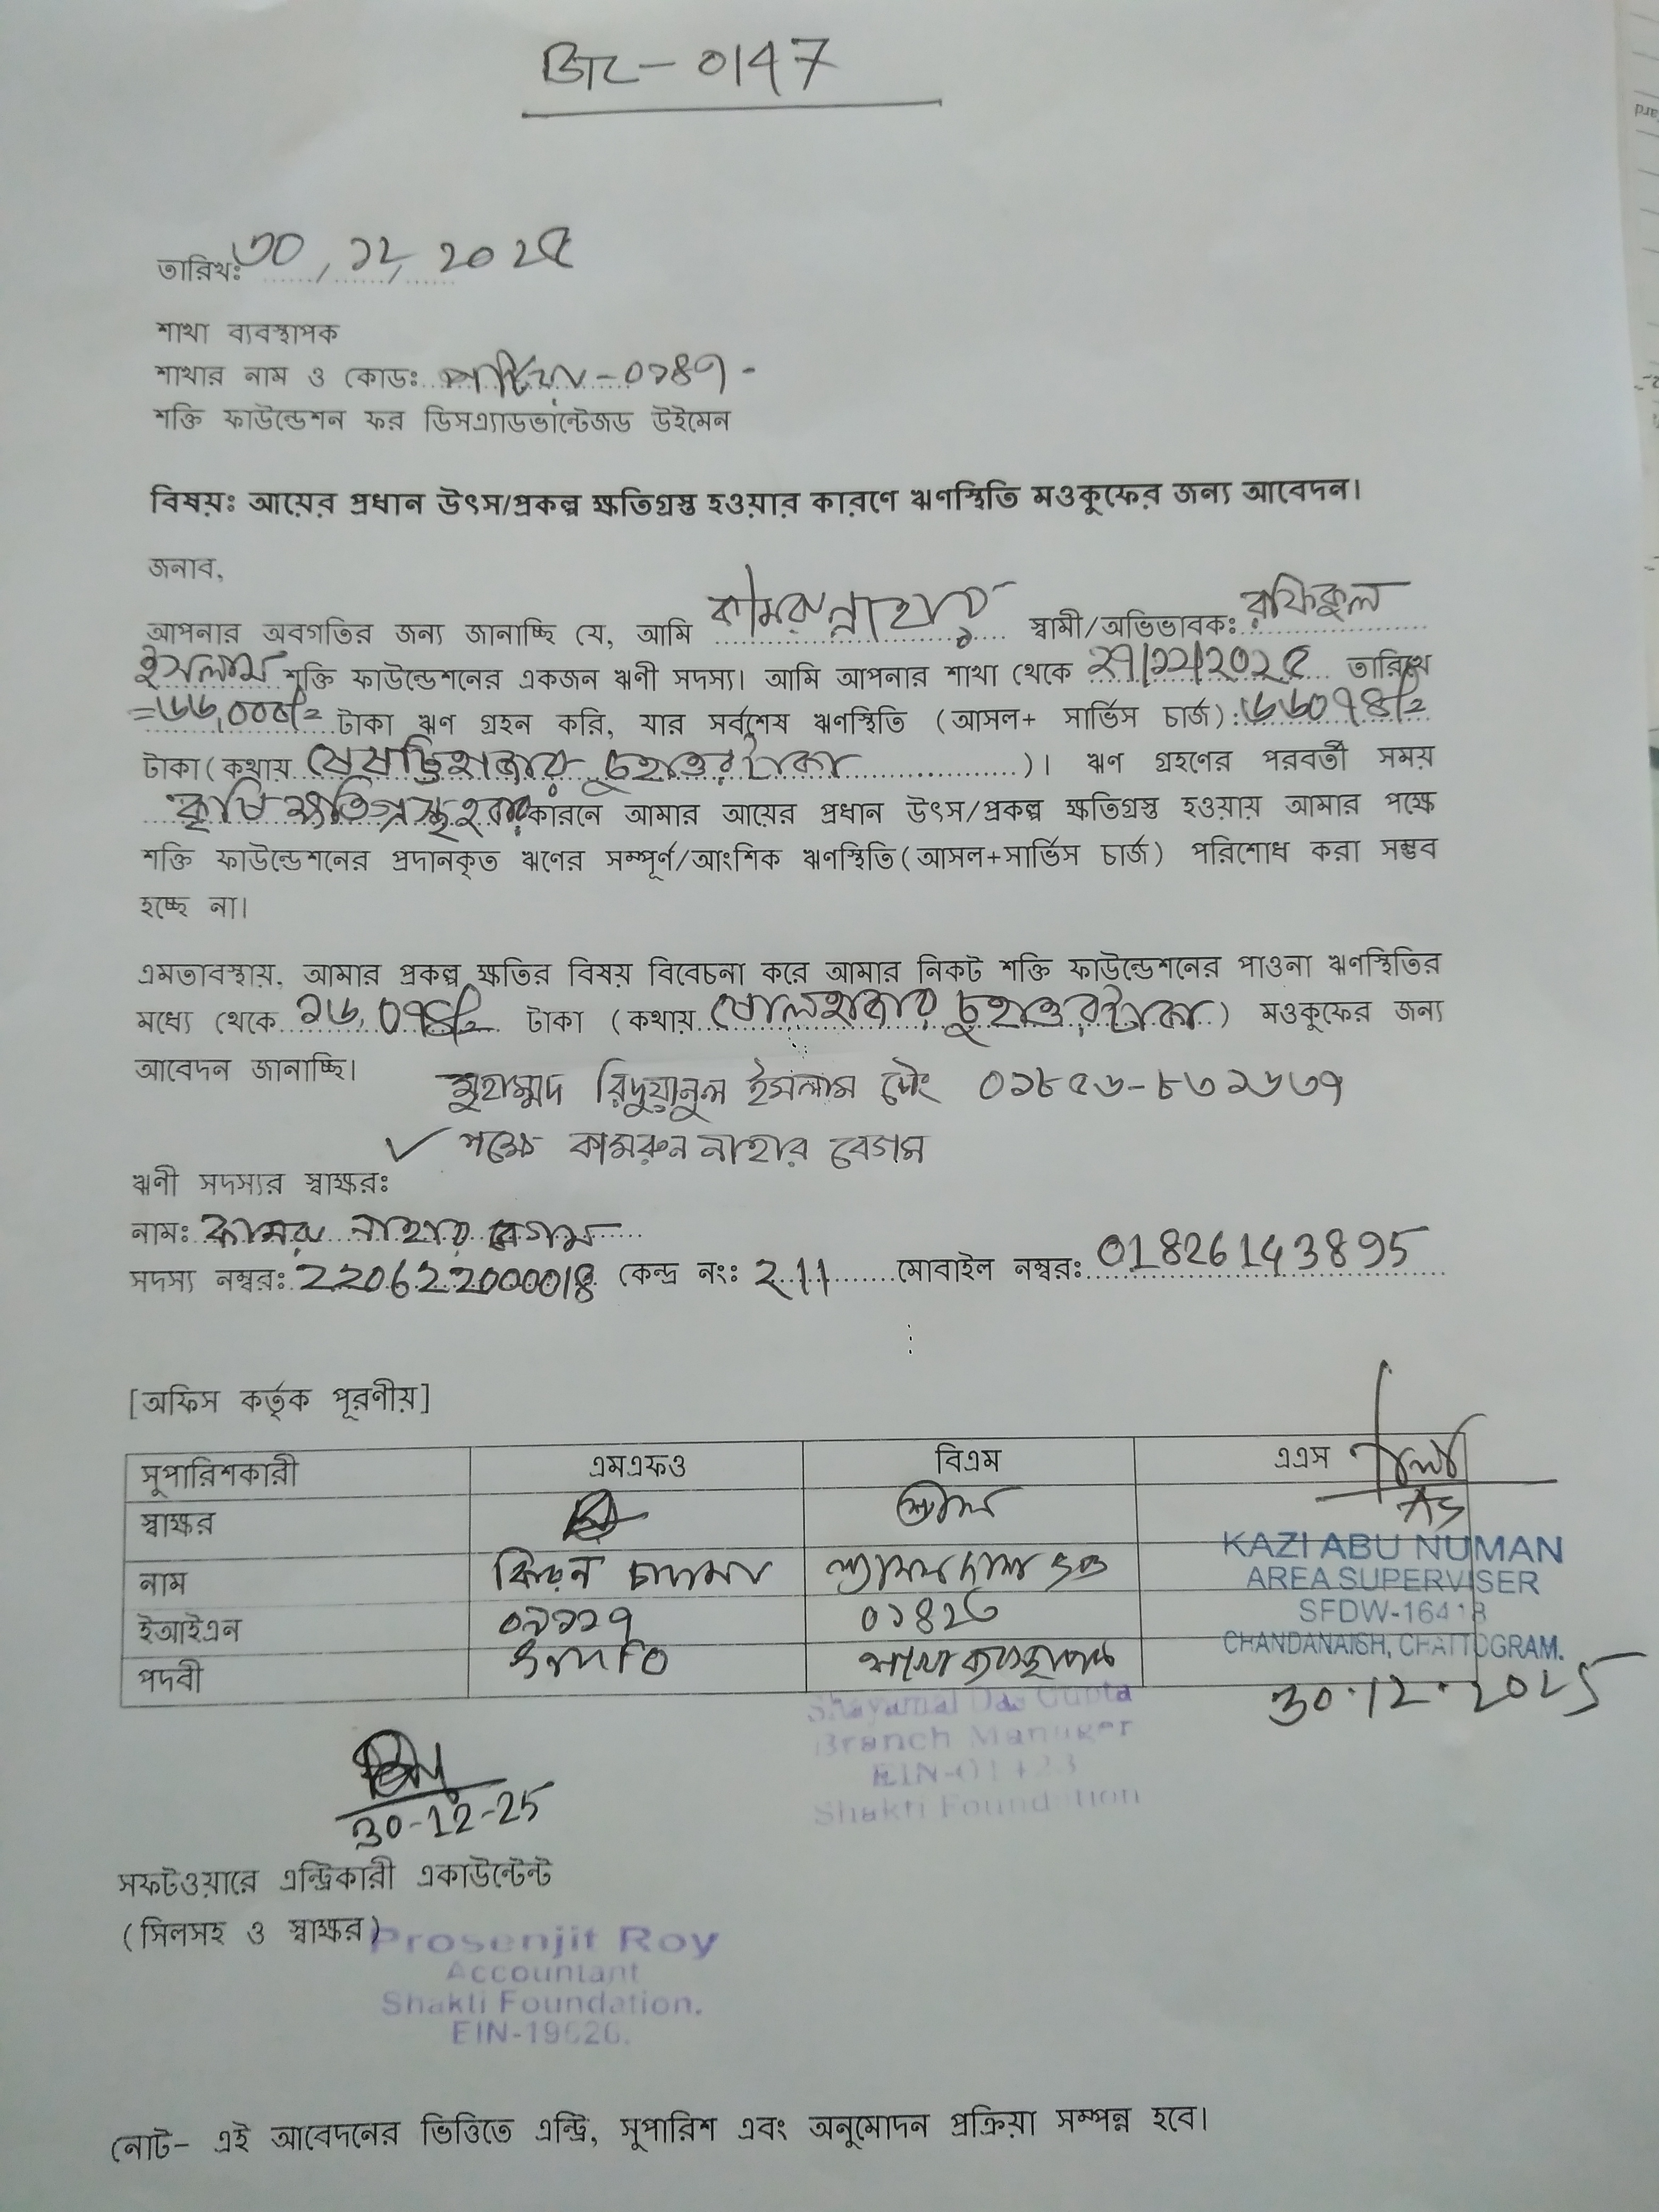 BR-0147
তারিখঃ ৩০/১২/২০২৫
শাখা ব্যবস্থাপক
শাখার নাম ও কোডঃ পটিয়া-০১৪৭
শক্তি ফাউন্ডেশন ফর ডিসএ্যাডভান্টেজড উইমেন
বিষয়ঃ আয়ের প্রধান উৎস/প্রকল্প ক্ষতিগ্রস্ত হওয়ার কারণে ঋণস্থিতি মওকুফের জন্য আবেদন।
জনাব,
আপনার অবগতির জন্য জানাচ্ছি যে, আমি কামরুন্নাহার স্বামী/অভিভাবকঃ রফিকুল
ইসলাম শক্তি ফাউন্ডেশনের একজন ঋণী সদস্য। আমি আপনার শাখা থেকে ২৭/১১/২০২৫ তারিখে
=৬৬,০০০/= টাকা ঋণ গ্রহন করি, যার সর্বশেষ ঋণস্থিতি (আসল+ সার্ভিস চার্জ):৬৬০৭৪/=
টাকা(কথায় ষেষট্টিহাজার চুহাত্তর টাকা)। ঋণ গ্রহণের পরবর্তী সময়
কৃষি ক্ষতিগ্রস্থ হবার কারনে আমার আয়ের প্রধান উৎস/প্রকল্প ক্ষতিগ্রস্ত হওয়ায় আমার পক্ষে
শক্তি ফাউন্ডেশনের প্রদানকৃত ঋণের সম্পূর্ণ/আংশিক ঋণস্থিতি(আসল+সার্ভিস চার্জ) পরিশোধ করা সম্ভব
হচ্ছে না।
এমতাবস্থায়, আমার প্রকল্প ক্ষতির বিষয় বিবেচনা করে আমার নিকট শক্তি ফাউন্ডেশনের পাওনা ঋণস্থিতির
মধ্যে থেকে ১৬,০৭৪/= টাকা (কথায় ষোলহাজার চুহাত্তর টাকা) মওকুফের জন্য
আবেদন জানাচ্ছি।
মুহাম্মদ রিদুয়ানুল ইসলাম মোং ০১৮৫৬-৮৩১৬৩৭
✓ পক্ষে কামরুন নাহার বেগম
ঋণী সদস্যর স্বাক্ষরঃ
নামঃ কামরু নাহার বেগম
সদস্য নম্বরঃ 220622000018 কেন্দ্র নংঃ 211 মোবাইল নম্বরঃ 01826143895
[অফিস কর্তৃক পূরণীয়]
সুপারিশকারী এমএফও বিএম এএস
স্বাক্ষর AS
নাম চাকমা শ্যামল দাশ গুপ্ত KAZI ABU NUMAN
AREA SUPERVISER
ইআইএন SFDW-16418
পদবী SMFO শাখা ব্যবস্থাপক CHANDANAISH, CHATTOGRAM.
30.12.2025
Shayamal Das Gupta
Branch Manager
EIN-01423
Shakti Foundation
30-12-25
সফটওয়ারে এন্ট্রিকারী একাউন্টেন্ট
(সিলসহ ও স্বাক্ষর)
Prosenjit Roy
Accountant
Shakti Foundation.
EIN-19626.
নোট- এই আবেদনের ভিত্তিতে এন্ট্রি, সুপারিশ এবং অনুমোদন প্রক্রিয়া সম্পন্ন হবে।